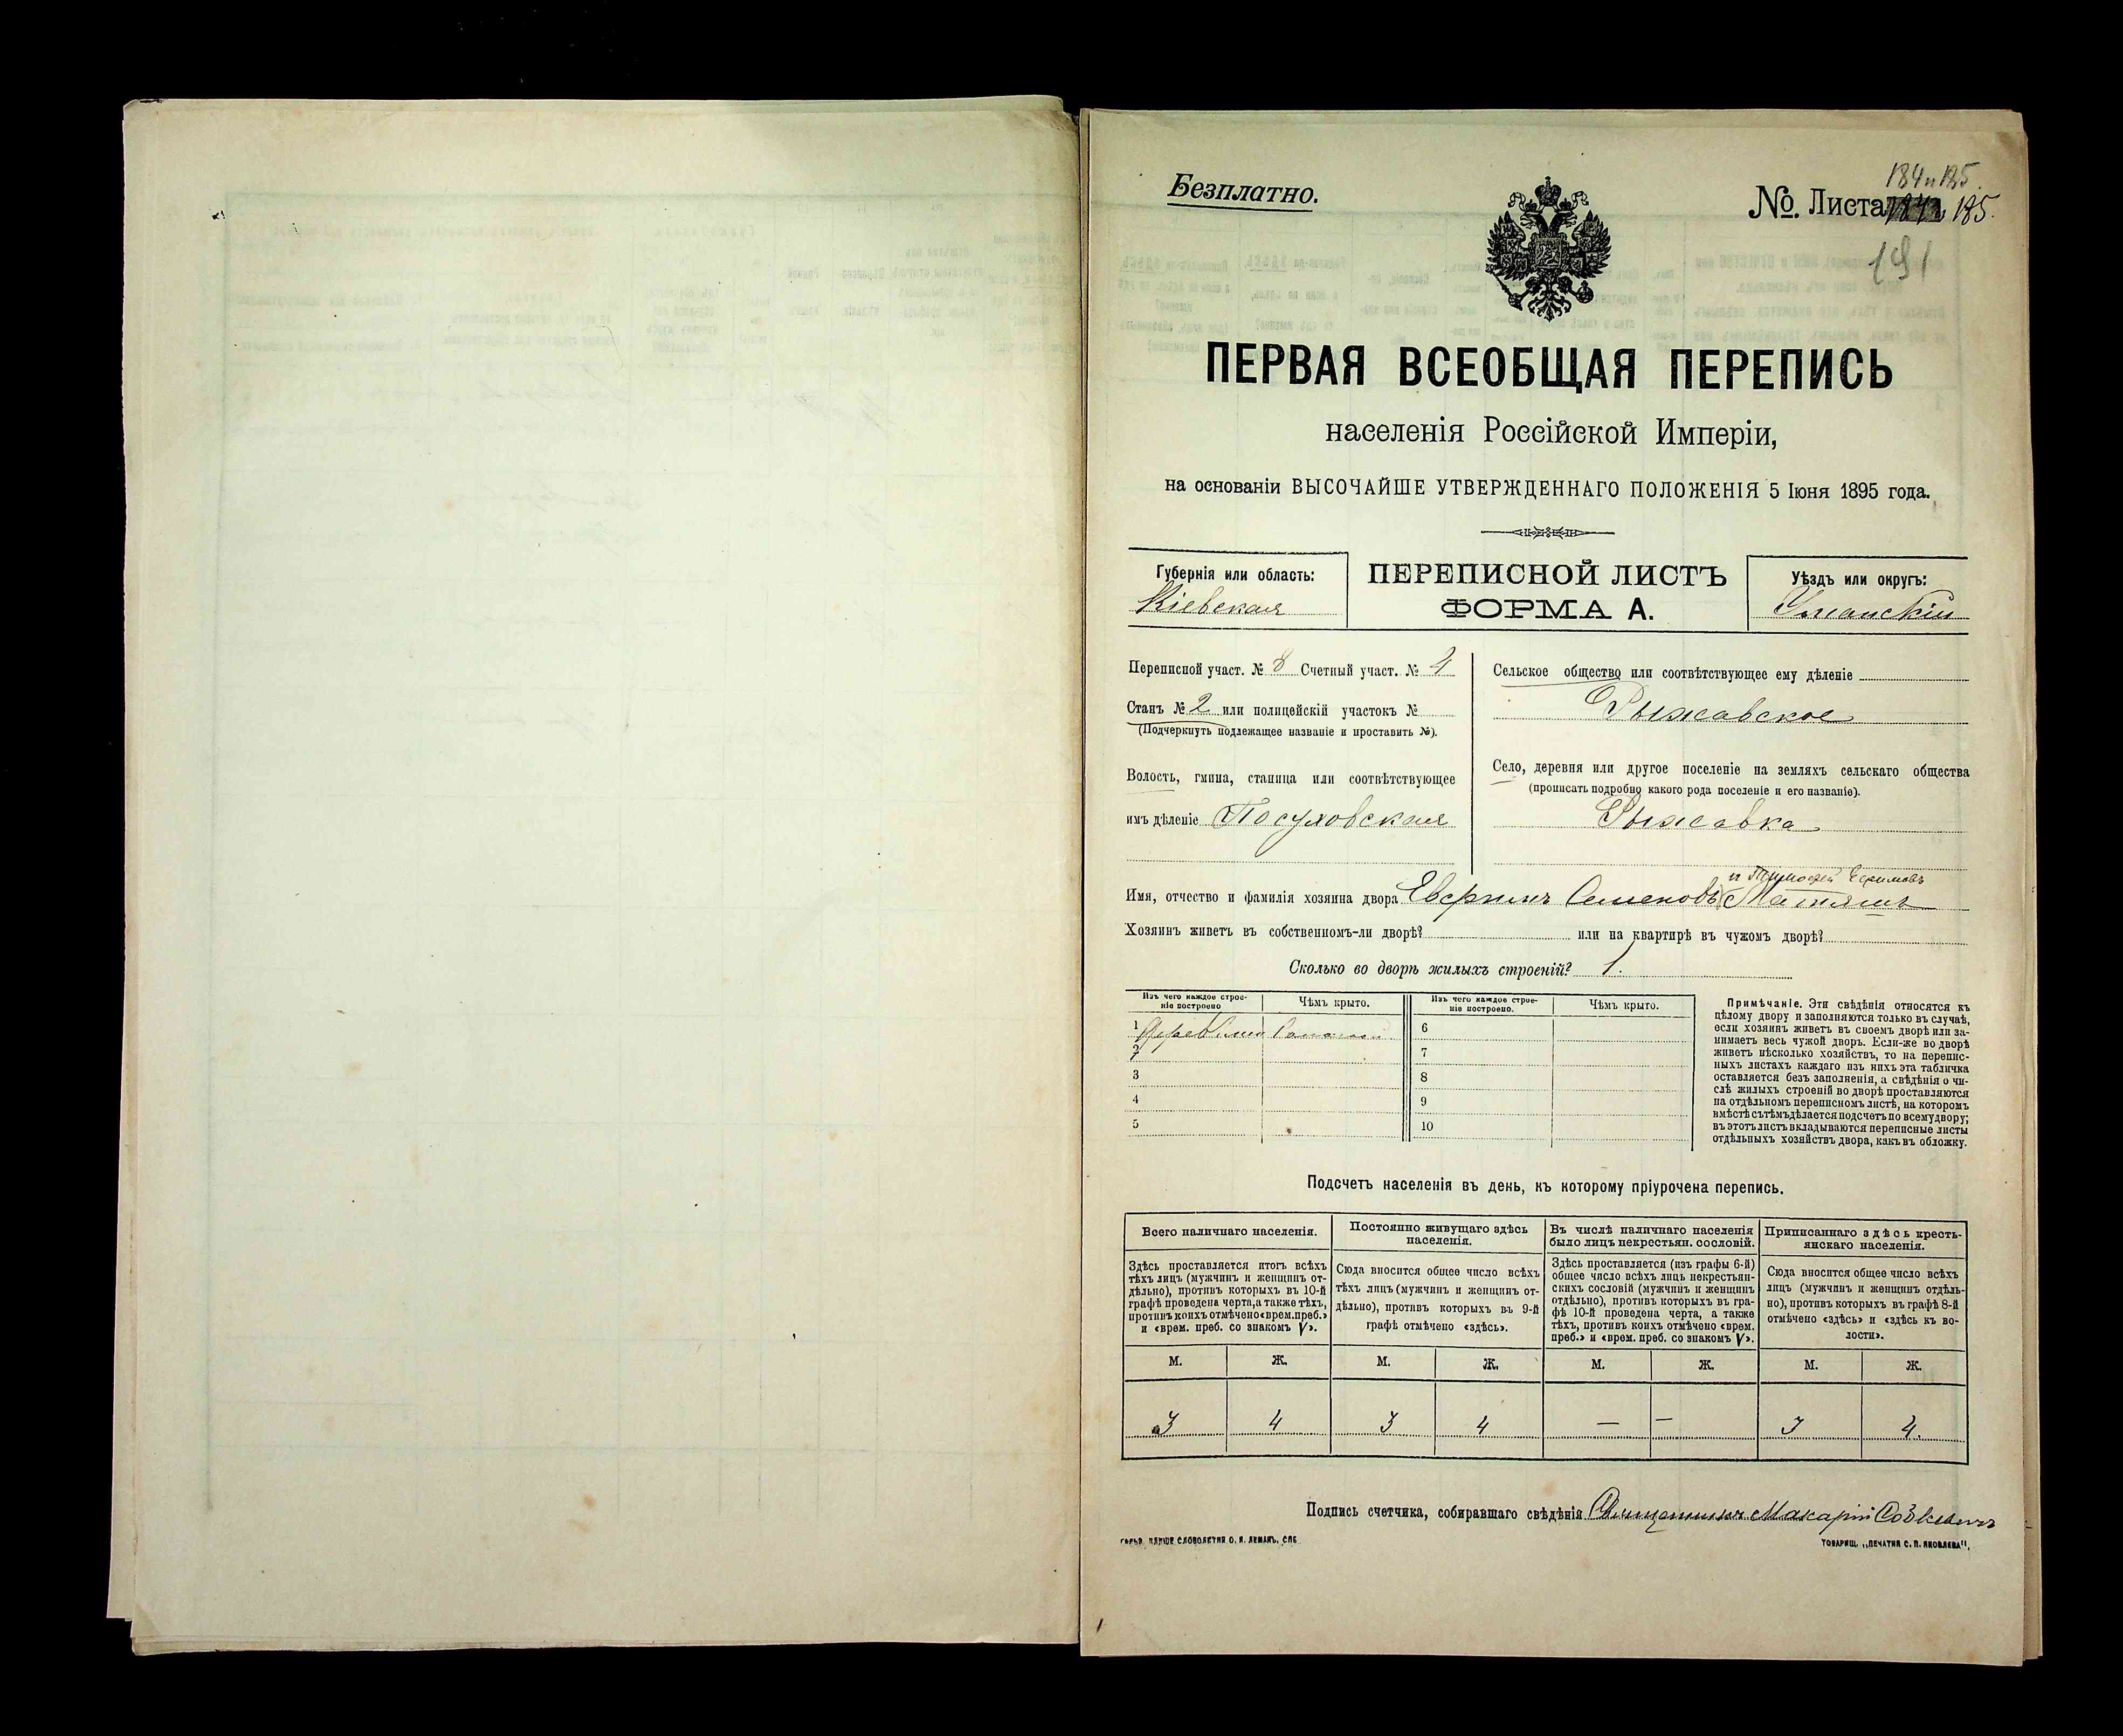 Безплатно.
184 и 185.
№. Листа 185.
191
ПЕРВАЯ ВСЕОБЩАЯ ПЕРЕПИСЬ
населенія Россійской Имперіи,
на основаніи ВЫСОЧАЙШЕ УТВЕРЖДЕННАГО ПОЛОЖЕНІЯ 5 Іюня 1895 года.
Губернія или область:
Кіевская
ПЕРЕПИСНОЙ ЛИСТЪ
ФОРМА А.
Уѣздъ или округъ:
Уманскій
Переписной участ. № 8 Счетный участ. № 4
Станъ № 2 или полицейскій участокъ №
(Подчеркнуть подлежащее названіе и проставить №).
Волость, гмина, станица или соотвѣтствующее
имъ дѣленіе Посуховская
Сельское общество или соотвѣтствующее ему дѣленіе
Рыжавское
Село, деревня или другое поселеніе на земляхъ сельскаго общества
(прописать подробно какого рода поселеніе и его названіе).
Рыжавка
и Тимофей Ефимовъ
Имя, отчество и фамилія хозяина двора Семеновъ Матяшъ
Хозяинъ живетъ въ собственномъ-ли дворѣ? или на квартирѣ въ чужомъ дворѣ?
Сколько во дворѣ жилыхъ строеній? 1.
Изъ чего каждое строе-
ніе построено
Чѣмъ крыто.
Изъ чего каждое строе-
ніе построено.
Чѣмъ крыто.
1
2
3
4
5
6
7
8
9
10
Примѣчаніе. Эти свѣдѣнія относятся къ
цѣлому двору и заполняются только въ случаѣ,
если хозяинъ живетъ въ своемъ дворѣ или за-
нимаетъ весь чужой дворъ. Если-же во дворѣ
живетъ нѣсколько хозяйствъ, то на перепис-
ныхъ листахъ каждаго изъ нихъ эта табличка
оставляется безъ заполненія, а свѣдѣнія о чи-
слѣ жилыхъ строеній во дворѣ проставляются
на отдѣльномъ переписномъ листѣ, на которомъ
вмѣстѣ съ тѣмъ дѣлается подсчетъ по всему двору;
въ этотъ листъ вкладываются переписные листы
отдѣльныхъ хозяйствъ двора, какъ въ обложку.
Подсчетъ населенія въ день, къ которому пріурочена перепись.
Всего наличнаго населенія.
Здѣсь проставляется итогъ всѣхъ
тѣхъ лицъ (мужчинъ и женщинъ от-
дѣльно), противъ которыхъ въ 10-й
графѣ проведена черта, а также тѣхъ,
противъ коихъ отмѣчено «врем. преб.»
и «врем. преб. со знакомъ V».
Постоянно живущаго здѣсь
населенія.
Сюда вносится общее число всѣхъ
тѣхъ лицъ (мужчинъ и женщинъ от-
дѣльно), противъ которыхъ въ 9-й
графѣ отмѣчено «здѣсь».
Въ числѣ наличнаго населенія
было лицъ некрестьян. сословій.
Здѣсь проставляется (изъ графы 6-й)
общее число всѣхъ лицъ некрестьян-
скихъ сословій (мужчинъ и женщинъ
отдѣльно), противъ которыхъ въ гра-
фѣ 10-й проведена черта, а также
тѣхъ, противъ коихъ отмѣчено «врем.
преб.» и «врем. преб. со знакомъ V».
Приписаннаго здѣсь кресть-
янскаго населенія.
Сюда вносится общее число всѣхъ
лицъ (мужчинъ и женщинъ отдѣль-
но), противъ которыхъ въ графѣ 8-й
отмѣчено «здѣсь» и «здѣсь къ во-
лости».
М. Ж. М. Ж. М. Ж. М. Ж.
3 4 3 4 — — 3 4.
Подпись счетчика, собиравшаго свѣдѣнія Макарій
СЛОВОЛИТНИ О. И. ЛЕМАНЪ, СПБ
ТОВАРИЩ. „ПЕЧАТНЯ С. П. ЯКОВЛЕВА".